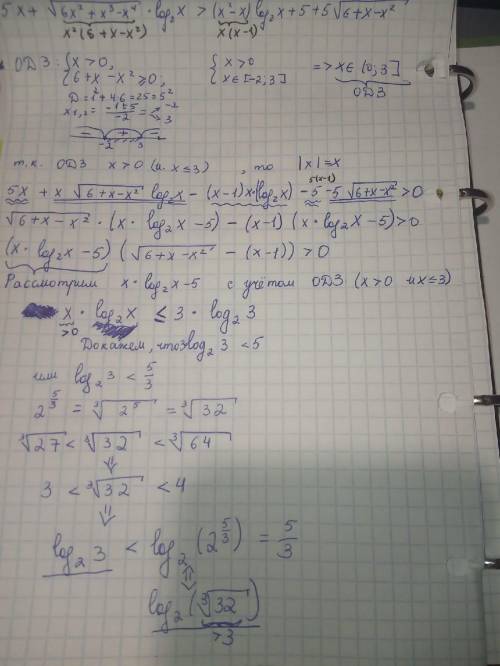 5x + √(6x² + x³ - x⁴) · log₂x > (x² - x) log₂x + 5 + 5√(6 + x - x²)
x²(6 + x - x²) x(x-1)
ОДЗ: { x > 0, { x > 0 => x ∈ (0; 3]
{ 6 + x - x² ≥ 0; { x ∈ [-2; 3] ОДЗ
D = 1² + 4·6 = 25 = 5²
x₁,₂ = (-1 ± 5)/(-2) = -2
3
- + -
-2 3
т.к. ОДЗ x > 0 (и x ≤ 3), то |x| = x
5(x-1)
5x + x √(6 + x - x²) log₂x - (x-1)x·(log₂x) - 5 - 5√(6 + x - x²) > 0
√(6 + x - x²) · (x · log₂x - 5) - (x-1) (x · log₂x - 5) > 0
(x · log₂x - 5) (√(6 + x - x²) - (x-1)) > 0
Рассмотрим x · log₂x - 5 с учётом ОДЗ (x > 0 и x ≤ 3)
x · log₂x ≤ 3 · log₂3
>0
Докажем, что 3log₂3 < 5
или log₂3 < 5/3
2^(5/3) = ³√(2⁵) = ³√32
³√27 < ³√32 < ³√64
⇓
3 < ³√32 < 4
⇓
log₂3 < log₂(2^(5/3)) = 5/3
⇕
log₂(³√32)
>3